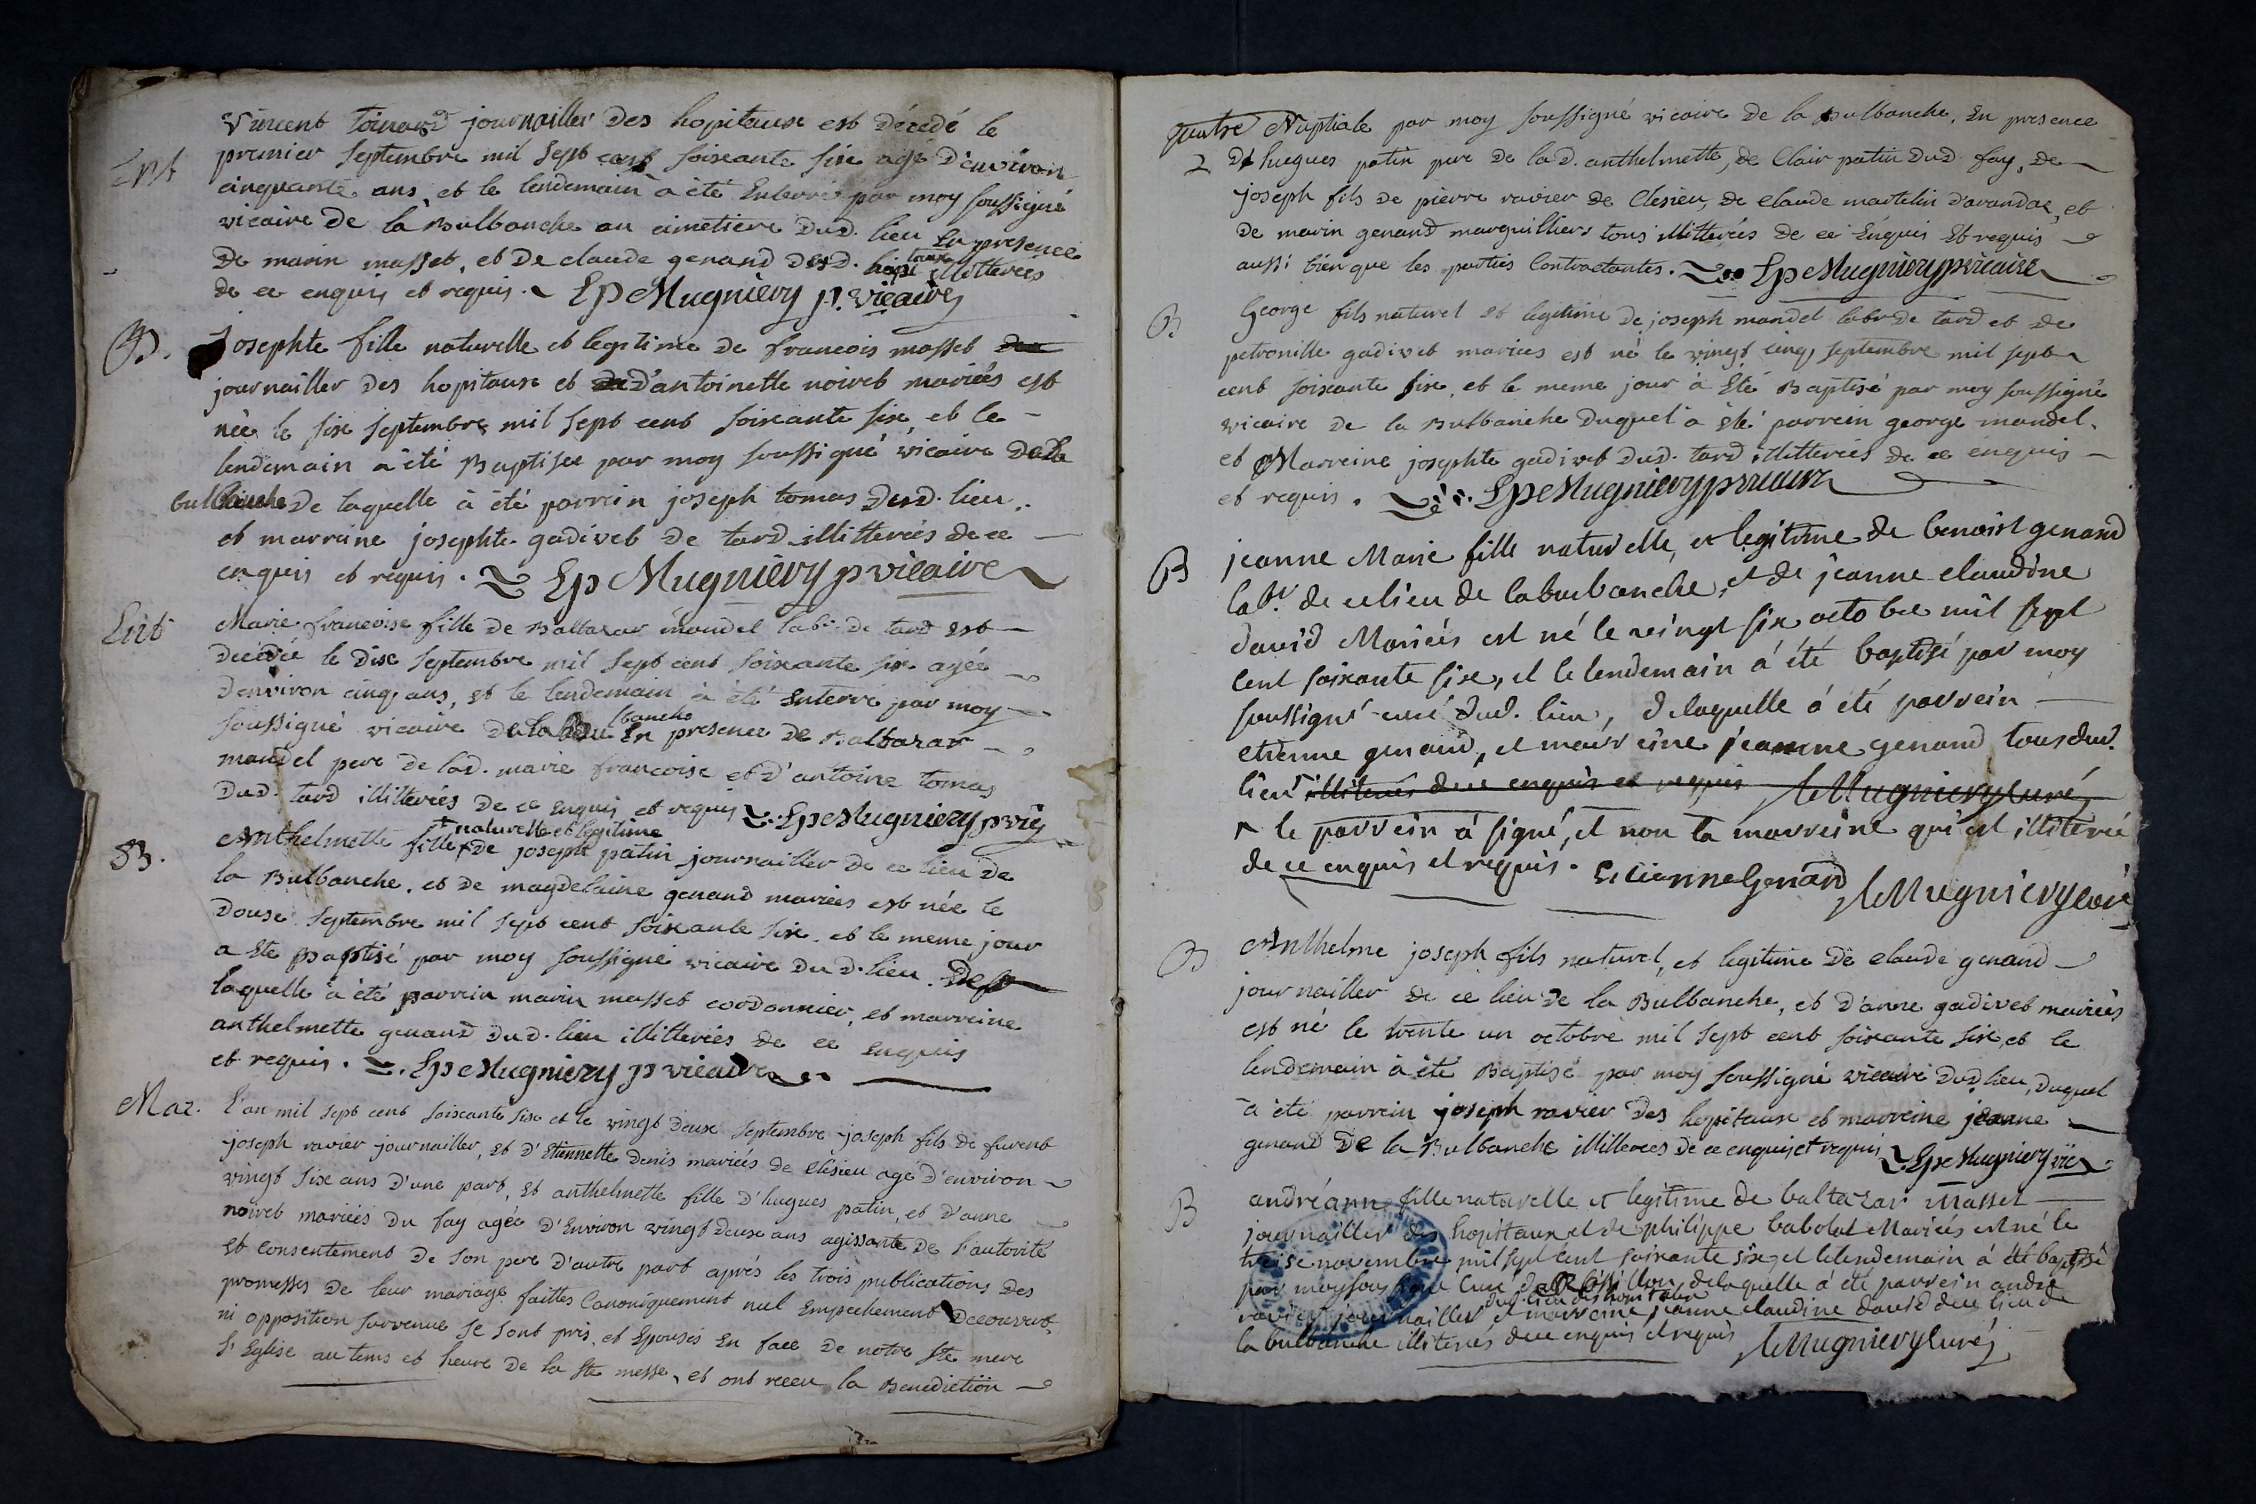 Vincent toinard journailler des hopitaux est décédé le
Ent
premier septembre mil sept cent soixante six agé d'environ
cinquante ans, et le lendemain à été enterré par moy soussigné
vicaire de la Bulbanche au cimetiere dud. lieu en presence
de marin masset, et de claude genand dud. lieu tous illitterés
de ce enquis et requis. Ep Mugniery p. vicaire
B.
Josephte fille naturelle et legitime de francois masset
journailler des hopitaux et d'antoinette noiret mariées est
née le six septembre mil sept cent soixante six, et le
lendemain a été Baptisée par moy soussigné vicaire de la
bulbanche de laquelle à été parrein joseph tomas dud. lieu.
et marraine josephte gadivet de tard illitterées de ce
enquis et requis. Ep Mugniery p vicaire
Ent
Marie francoise fille de Baltazar mandel labr. de tard est
décédée le dix septembre mil sept cent soixante six agée
d'environ cinq ans, et le lendemain à été enterré par moy
soussigné vicaire de la Bulbanche en presence de Baltazar
mandel pere de lad. marie francoise et d'antoine tomas
dud. tard illitterées de ce enquis et requis Ep Mugniery p vic
B.
Anthelmette fille naturelle et legitime de joseph patin journailler de ce lieu de
la Bulbanche, et de magdelaine genand mariées est née le
douse septembre mil sept cent soixante six, et le meme jour
a ete Baptisé par moy soussigné vicaire du d. lieu. de
laquelle à été parrein marin masset cordonnier, et marreine
anthelmette genand dud. lieu illitterées de ce enquis
et requis. Ep Mugniery p vicaire
Mar.
L'an mil sept cent soixante six et le vingt deux septembre joseph fils de furent
joseph ravier journailler, et d'Etiennette denis mariées de clesieu agé d'environ
vingt six ans d'une part, et anthelmette fille d'hugues patin, et d'anne
noiret mariées du fay agée d'environ vingt deux ans agissante de l'autorité
et consentement de son pere d'autre part aprés les trois publications des
promesses de leur mariage faittes Canoniquement nul empechement decouvert,
ni opposition survenue se sont pris, et Epousés en face de notre ste mere
l'Eglise au tems et heure de la ste messe, et ont receu la Benediction
quatre Nuptiale par moy soussigné vicaire de la Bulbanche, en presence
2 de hugues patin pere de lad. anthelmette, de Clair patin dud. fay, de
joseph fils de pierre ravier de Clesieu, de claude martelin d'arandas, et
de marin genand marguilliers tous illitterés de ce Enquis et requis
aussi bien que les parties Contractantes. Ep Mugniery p vicaire
B.
George fils naturel et legitime de joseph mandel labr de tard et de
petronille gadivet mariées est né le vingt cinq septembre mil sept
cent soixante six, et le meme jour à été Baptisé par moy soussigné
vicaire de la Bulbanche duquel à été parrein george mandel.
et Marreine josephte gadivet dud. tard illitterées de ce enquis
et requis. Ep Mugniery p vicaire
B
jeanne Marie fille naturelle, et legitime de benoist genand
labr. de ce lieu de la bulbanche, et de jeanne claudine
david Mariées est né le veingt six octobre mil sept
cent soixante six, et le lendemain à été baptisé par moy
soussigné curé dud. lieu, de laquelle à été parrein
etienne genand, et marreine jeanne genand tous dud.
lieu illiterés de ce enquis et requis Mugniery Curé
le parrein à signé, et non la marreine qui est illiterée
de ce enquis et requis. Etienne Genand Mugniery Curé
B
Anthelme joseph fils naturel, et legitime de claude genand
journailler de ce lieu de la Bulbanche, et d'anne gadivet mariées
est né le trente un octobre mil sept cent soixante six, et le
lendemain à été Baptisé par moy soussigné vicaire dud lieu, duquel
à été parrein joseph ravier des hopitaux et marreine jeanne
genand de la Bulbanche illitterees de ce enquis et requis Ep Mugniery vic
B
andréanne fille naturelle et legitime de baltazar Masset
journailler des hopitaux et de philippe babolat Mariées est né le
treise novembre mil sept cent soixante six, et le lendemain à été baptisé
par moy soussigné Curé de Rossillon, de laquelle à été parrein andré
ravier journailler dud. lieu des hopitaux et marreine jeanne claudine david de ce lieu de
la bulbanche illiterées de ce enquis et requis Mugniery Curé